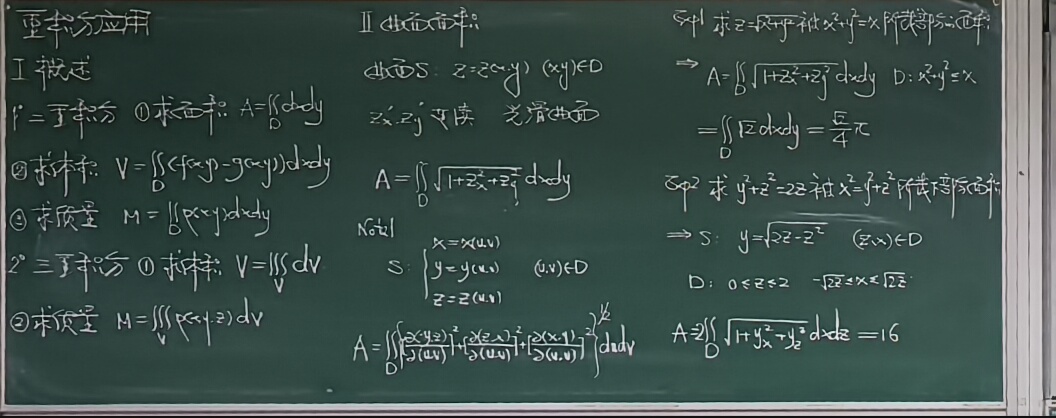 重积分应用
I 概述
1° 二重积分 ① 求面积: A=∬_D dxdy
② 求体积: V=∬_D (f(x,y)-g(x,y))dxdy
③ 求质量 M=∬_D ρ(x,y)dxdy
2° 三重积分 ① 求体积: V=∭_V dv
② 求质量 M=∭_V ρ(x,y,z)dv
II 曲面面积
曲面S: z=z(x,y) (x,y)∈D
z'x, z'y 连续 光滑曲面
A=∬_D √(1+z_x^2+z_y^2) dxdy
Note1
S: { x=x(u,v)
y=y(u,v) (u,v)∈D
z=z(u,v)
A=∬_D {[∂(y,z)/∂(u,v)]^2+[∂(z,x)/∂(u,v)]^2+[∂(x,y)/∂(u,v)]^2}^{1/2} dudv
Exp1 求 z=√(x^2+y^2) 被 x^2+y^2=x 所截部分面积
⇒ A=∬_D √(1+z_x^2+z_y^2) dxdy D: x^2+y^2≤x
=∬_D √2 dxdy = √2/4 π
Exp2 求 y^2+z^2=2z 被 x^2=y^2+z^2 所截下部分面积
⇒ S: y=√(2z-z^2) (z,x)∈D
D: 0≤z≤2 -√(2z)≤x≤√(2z)
A=2∬_D √(1+y_x^2+y_z^2) dxdz =16